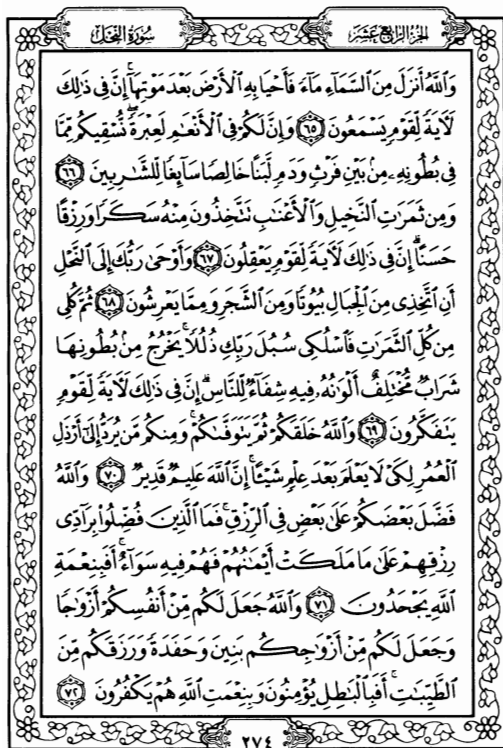 الجزء الرابع عشر
سورة النحل
وَاللَّهُ أَنزَلَ مِنَ السَّمَاءِ مَاءً فَأَحْيَا بِهِ الْأَرْضَ بَعْدَ مَوْتِهَا ۚ إِنَّ فِي ذَٰلِكَ
لَآيَةً لِّقَوْمٍ يَسْمَعُونَ ٦٥ وَإِنَّ لَكُمْ فِي الْأَنْعَٰمِ لَعِبْرَةً ۖ نُّسْقِيكُم مِّمَّا
فِي بُطُونِهِ مِنۢ بَيْنِ فَرْثٍ وَدَمٍ لَّبَنًا خَالِصًا سَآئِغًا لِّلشَّٰرِبِينَ ٦٦
وَمِن ثَمَرَٰتِ النَّخِيلِ وَالْأَعْنَٰبِ تَتَّخِذُونَ مِنْهُ سَكَرًا وَرِزْقًا
حَسَنًا ۗ إِنَّ فِي ذَٰلِكَ لَآيَةً لِّقَوْمٍ يَعْقِلُونَ ٦٧ وَأَوْحَىٰ رَبُّكَ إِلَى النَّحْلِ
أَنِ اتَّخِذِي مِنَ الْجِبَالِ بُيُوتًا وَمِنَ الشَّجَرِ وَمِمَّا يَعْرِشُونَ ٦٨ ثُمَّ كُلِي
مِن كُلِّ الثَّمَرَٰتِ فَاسْلُكِي سُبُلَ رَبِّكِ ذُلُلًا ۚ يَخْرُجُ مِنۢ بُطُونِهَا
شَرَابٌ مُّخْتَلِفٌ أَلْوَٰنُهُ فِيهِ شِفَآءٌ لِّلنَّاسِ ۗ إِنَّ فِي ذَٰلِكَ لَآيَةً لِّقَوْمٍ
يَتَفَكَّرُونَ ٦٩ وَاللَّهُ خَلَقَكُمْ ثُمَّ يَتَوَفَّىٰكُمْ ۚ وَمِنكُم مَّن يُرَدُّ إِلَىٰ أَرْذَلِ
الْعُمُرِ لِكَيْ لَا يَعْلَمَ بَعْدَ عِلْمٍ شَيْـًٔا ۚ إِنَّ اللَّهَ عَلِيمٌ قَدِيرٌ ٧٠ وَاللَّهُ
فَضَّلَ بَعْضَكُمْ عَلَىٰ بَعْضٍ فِي الرِّزْقِ ۚ فَمَا الَّذِينَ فُضِّلُوا بِرَآدِّي
رِزْقِهِمْ عَلَىٰ مَا مَلَكَتْ أَيْمَٰنُهُمْ فَهُمْ فِيهِ سَوَآءٌ ۚ أَفَبِنِعْمَةِ
اللَّهِ يَجْحَدُونَ ٧١ وَاللَّهُ جَعَلَ لَكُم مِّنْ أَنفُسِكُمْ أَزْوَٰجًا
وَجَعَلَ لَكُم مِّنْ أَزْوَٰجِكُم بَنِينَ وَحَفَدَةً وَرَزَقَكُم مِّنَ
الطَّيِّبَٰتِ ۚ أَفَبِالْبَٰطِلِ يُؤْمِنُونَ وَبِنِعْمَتِ اللَّهِ هُمْ يَكْفُرُونَ ٧٢
٢٧٤